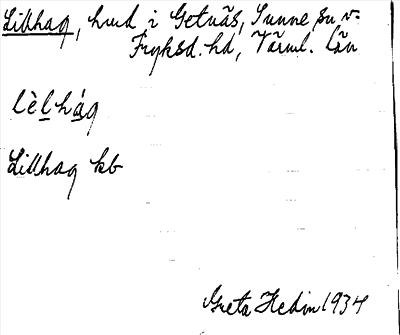 Lillhag, hmd i Getnäs, Sunne sn v:
Fryksd. hd, Värml. län
lèlhág
Lillhag kb
Greta Hedin 1934